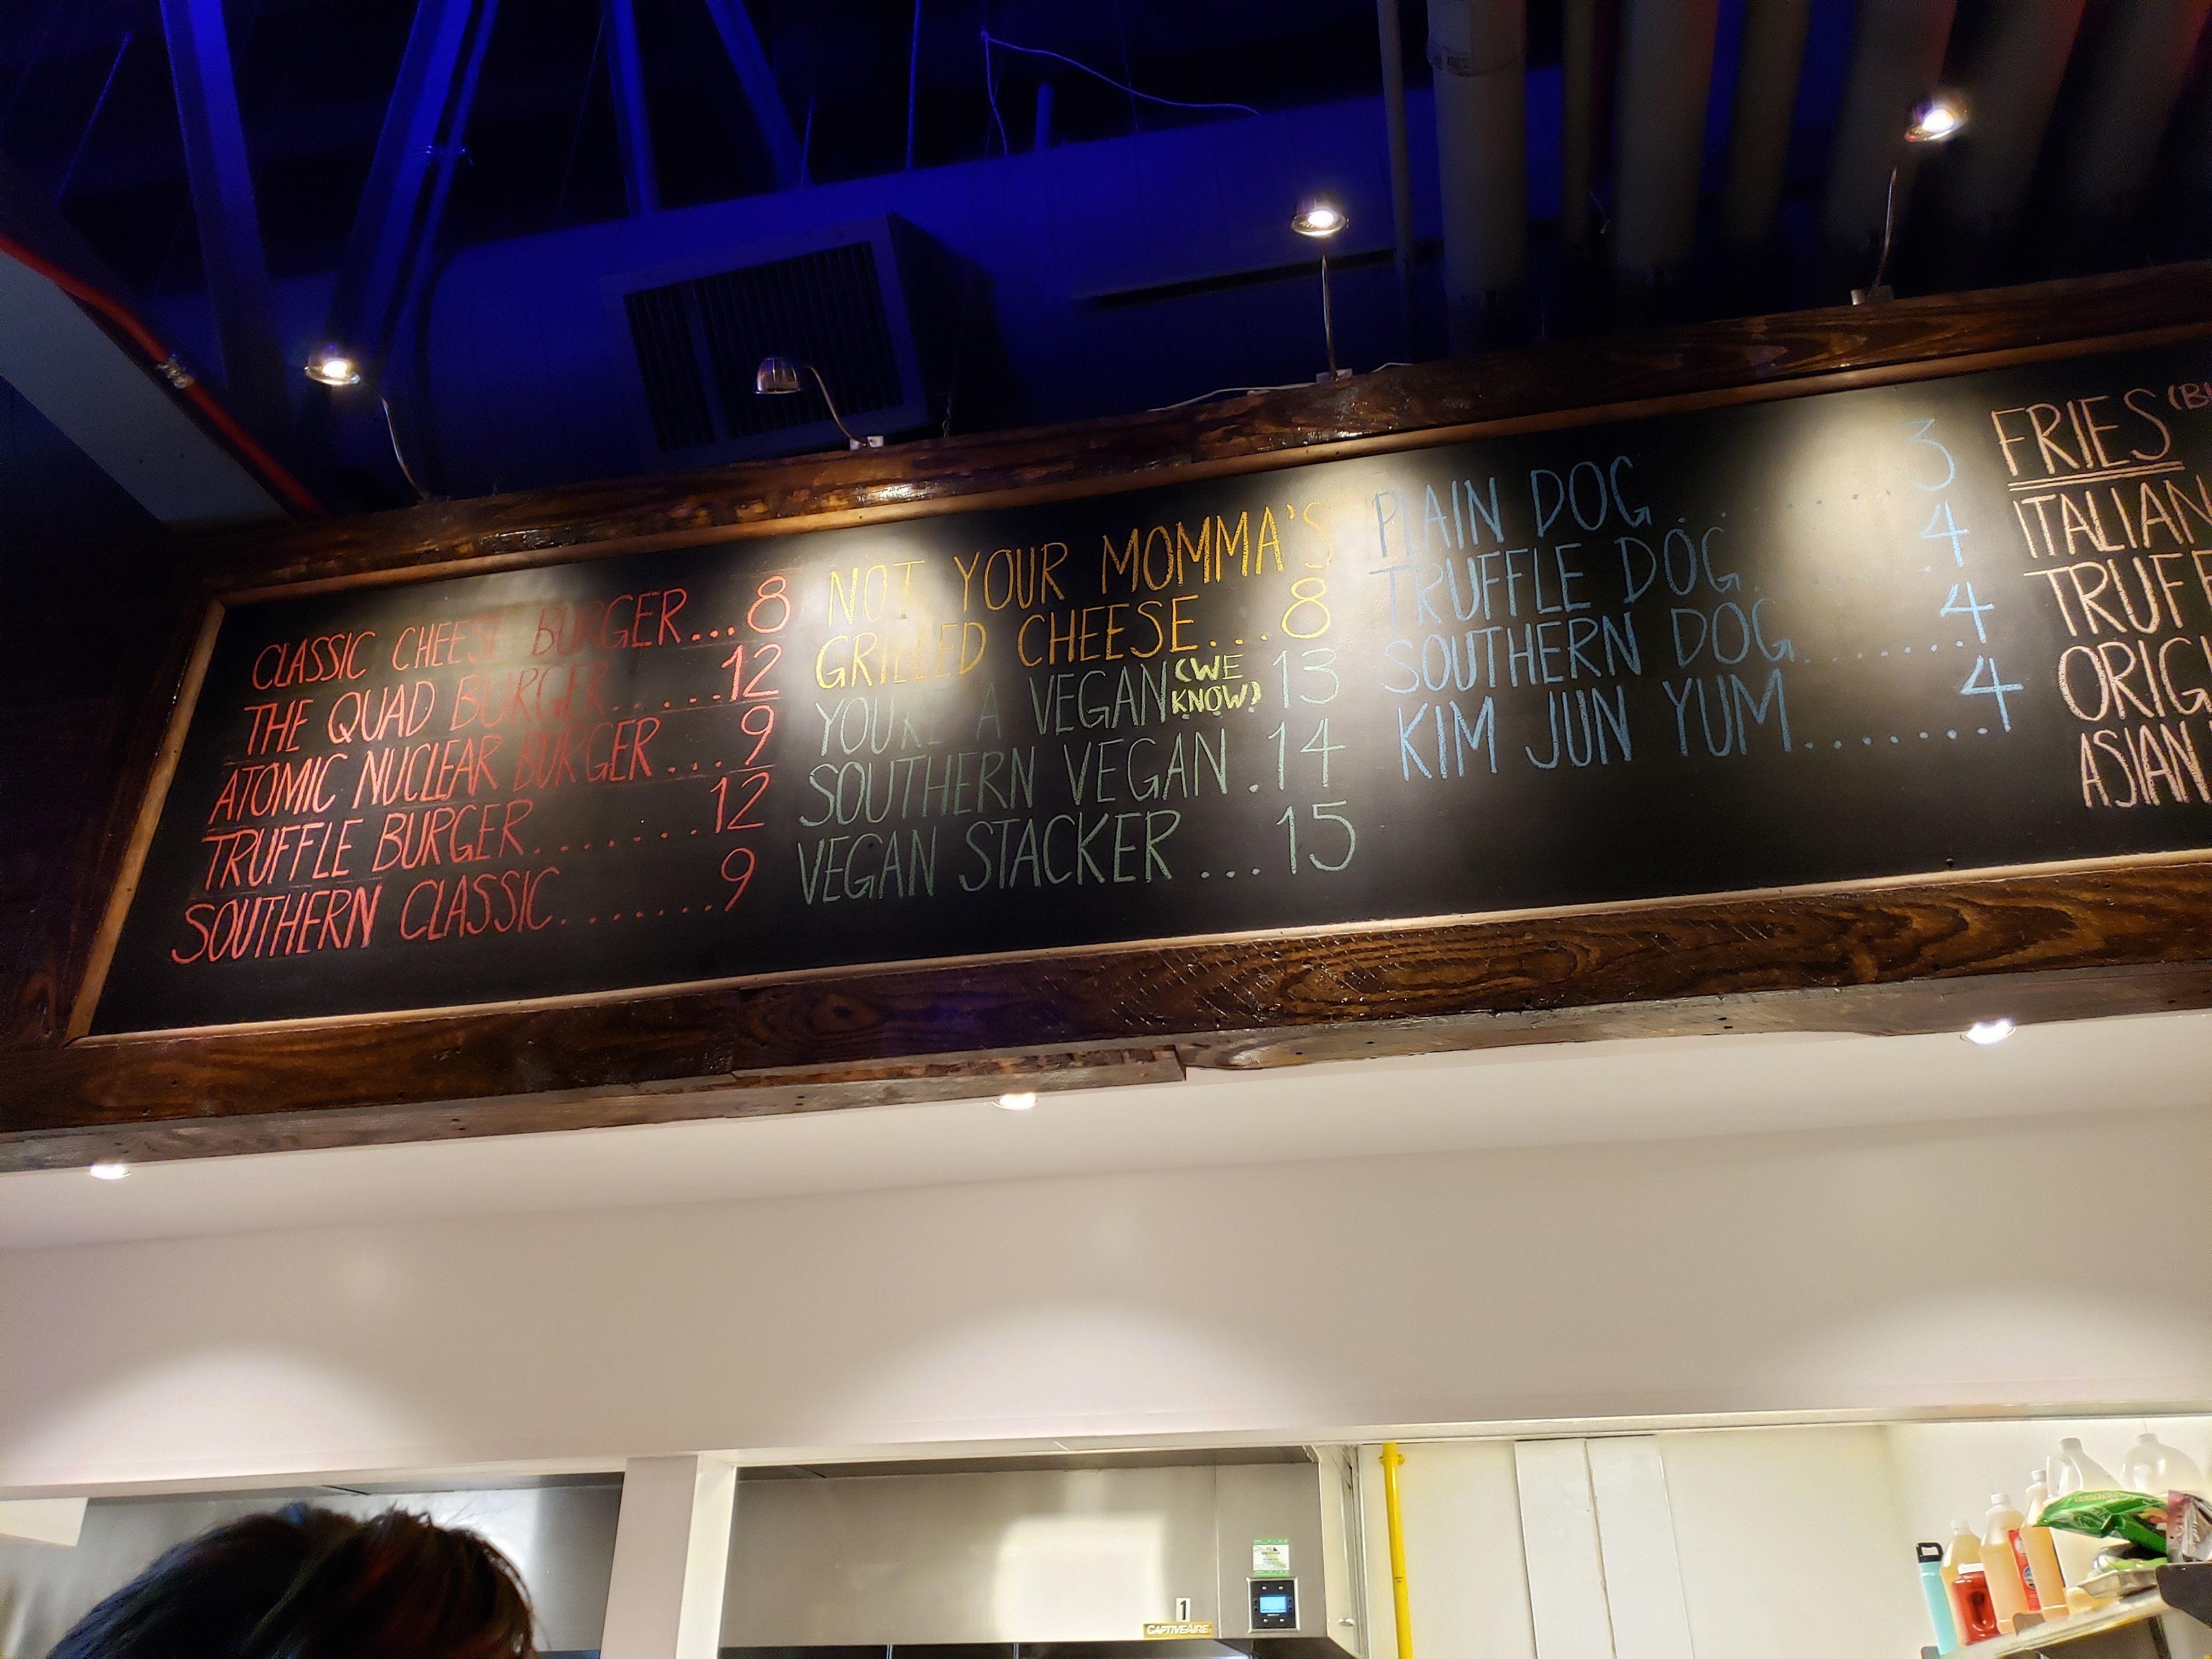 CLASSIC CHEESE BURGER...8
THE QUAD BURGER.....12
ATOMIC NUCLEAR BURGER...9
TRUFFLE BURGER.......12
SOUTHERN CLASSIC.......9
NOT YOUR MOMMA'S
GRILLED CHEESE...8
YOU'RE A VEGAN (WE KNOW) 13
SOUTHERN VEGAN.14
VEGAN STACKER...15
PLAIN DOG........3
TRUFFLE DOG.......4
SOUTHERN DOG........4
KIM JUN YUM........4
FRIES
ITALIAN
ASIAN
1
CAPTIVEAIRE